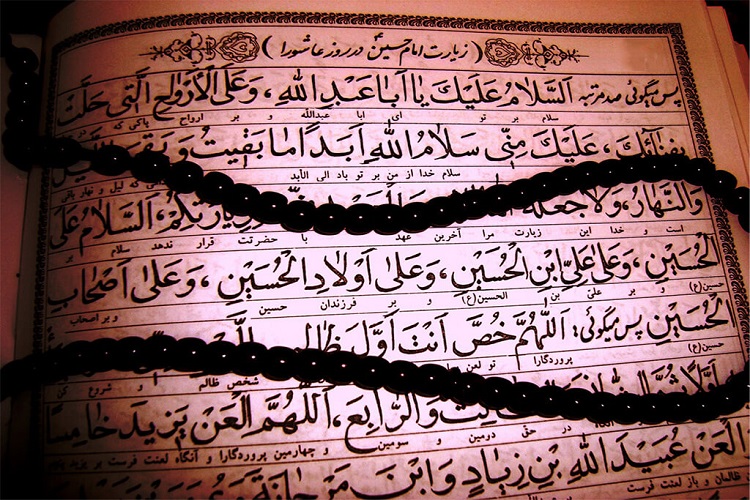 زیارت امام حسین ع در روز عاشورا
پس میگوئی صد مرتبه اَلسَّلامُ عَلَيْكَ يا اَبا عَبْدِ اللهِ ، وَعَلَى الْاَرْواحِ الَّتى حَلَّتْ
سلام بر تو ای ابا عبدالله و بر ارواح پاکی که
بِفِنائِكَ ، عَلَيْكَ مِنّى سَلامُ اللهِ اَبَدًا ما بَقيتُ وَ بَقِىَ اللَّيْلُ
سلام خدا از من بر تو باد الی الابد که لیل و نهار باقی
وَالنَّهارُ، وَلا جَعَلَهُ اللهُ زِيارَتِكُمْ، اَلسَّلامُ عَلَى
است و خدا این زیارت مرا آخرین عهد با حضرتت قرار ندهد سلام بر
الْحُسَيْنِ ، وَعَلى عَلِىِّ ابْنِ الْحُسَيْنِ ، وَعَلى اَوْلادِ الْحُسَيْنِ ، وَعَلى اَصْحابِ
حسین(ع) و بر علی بن الحسین(ع) و بر فرزندان حسین و بر اصحاب
الْحُسَيْنِ پس میگوئی: اَللّهُمَّ خُصَّ اَنْتَ اَوَّلَ ظالِمٍ
حسین(ع) پروردگارا تو لعن شخص ظالم و شروع کن
وَالرّابِعَ، اَللّهُمَّ الْعَنْ يَزيدَ خامِسًا
در حق دومین و سومین و چهارمین پروردگارا و آنگاه لعنت فرست بر یزید
الْعَنْ عُبَيْدَ اللهِ بْنَ زِيادٍ وَابْنَ مَرْجانَةَ
ظالمان و باز لعنت فرست